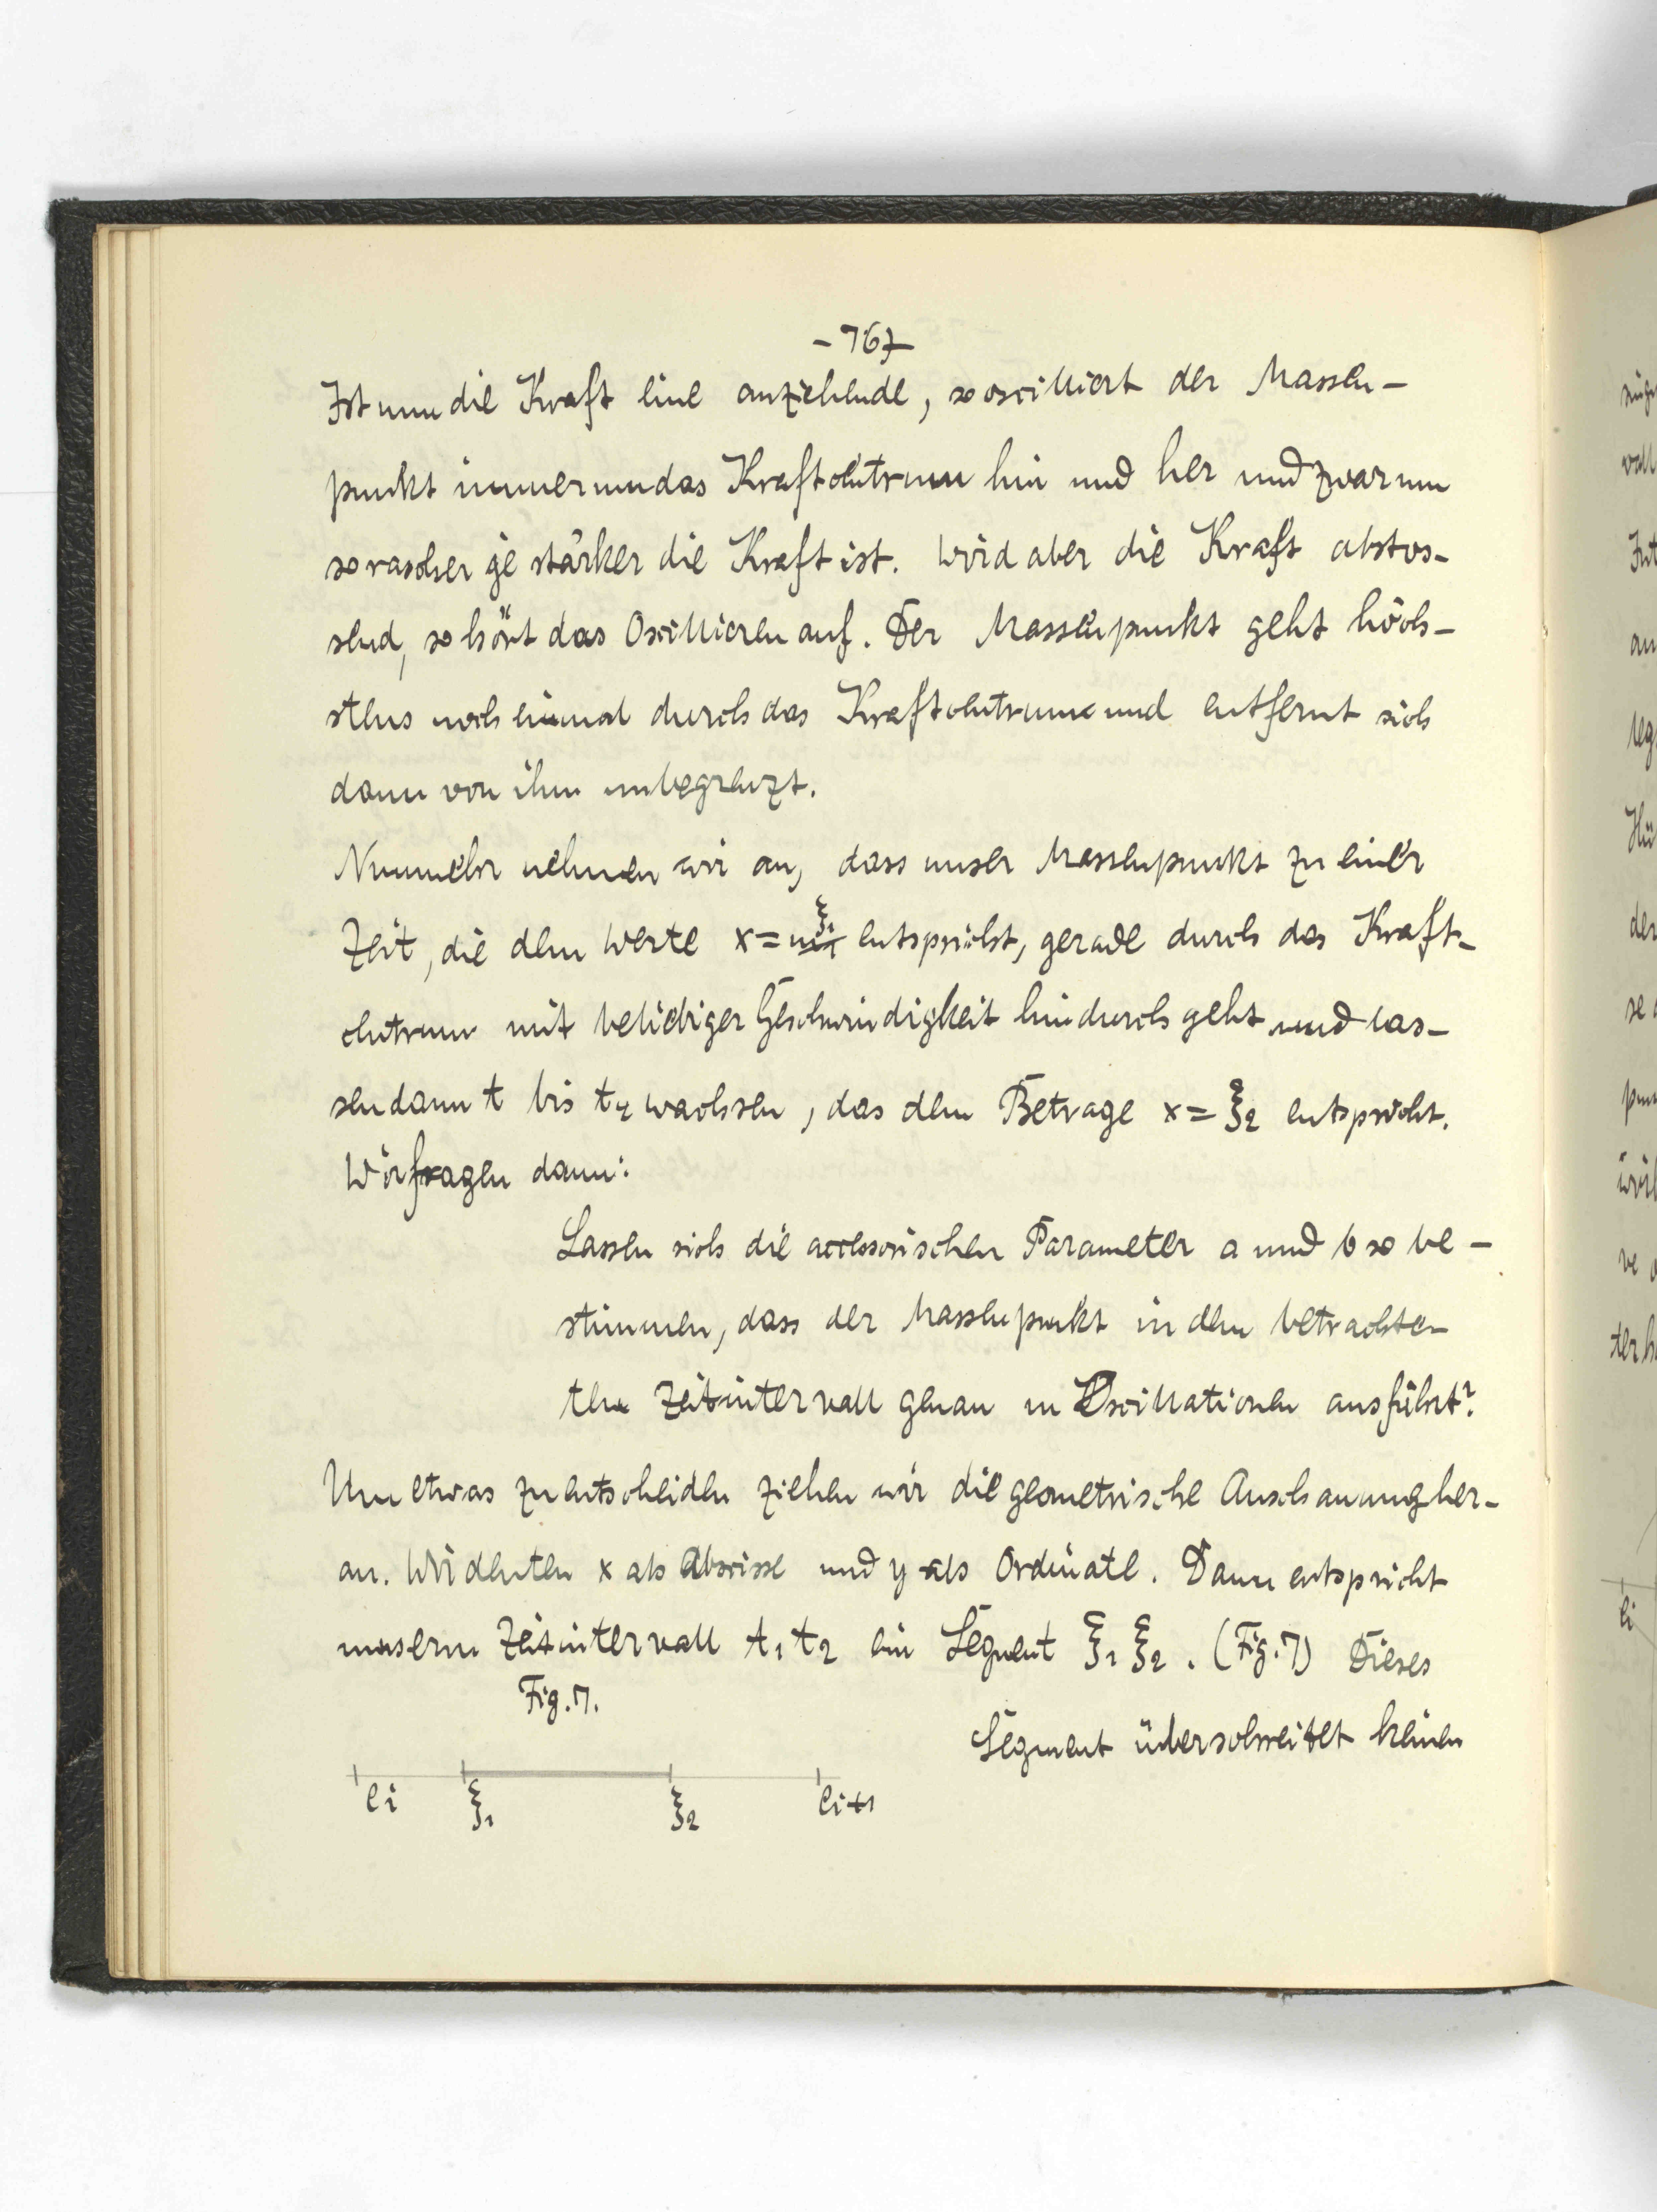 - 767 -
Ist nun die Kraft eine anziehende, so oscilliert der Massen-
punkt immer um das Kraftcentrum hin und her und zwar um
so rascher je stärker die Kraft ist. Wird aber die Kraft abstos-
send, so hört das Oscillieren auf. Der Massenpunkt geht höch-
stens noch einmal durch das Kraftcentrum und entfernt sich
dann von ihm unbegrenzt.
Nunmehr nehmen wir an, dass unser Massenpunkt zu einer
Zeit, die dem Werte x = ξ₁ entspricht, gerade durch das Kraft-
centrum mit beliebiger Geschwindigkeit hindurch geht und las-
sen dann t bis t₂ wachsen, das dem Betrage x = ξ₂ entspricht.
Wir fragen dann:
Lassen sich die accessorischen Parameter a und b so be-
stimmen, dass der Massenpunkt in dem betrachte-
ten Zeitintervall genau m Oscillationen ausführt?
Um etwas zu entscheiden ziehen wir die geometrische Anschauung her-
an. Wir deuten x als Abscisse und y als Ordinate. Dann entspricht
unserm Zeitintervall t₁ t₂ ein Segment ξ₁ ξ₂. (Fig. 7) Dieses
Fig. 7.
Segment überschreitet keinen
eᵢ ξ₁ ξ₂ eᵢ₊₁